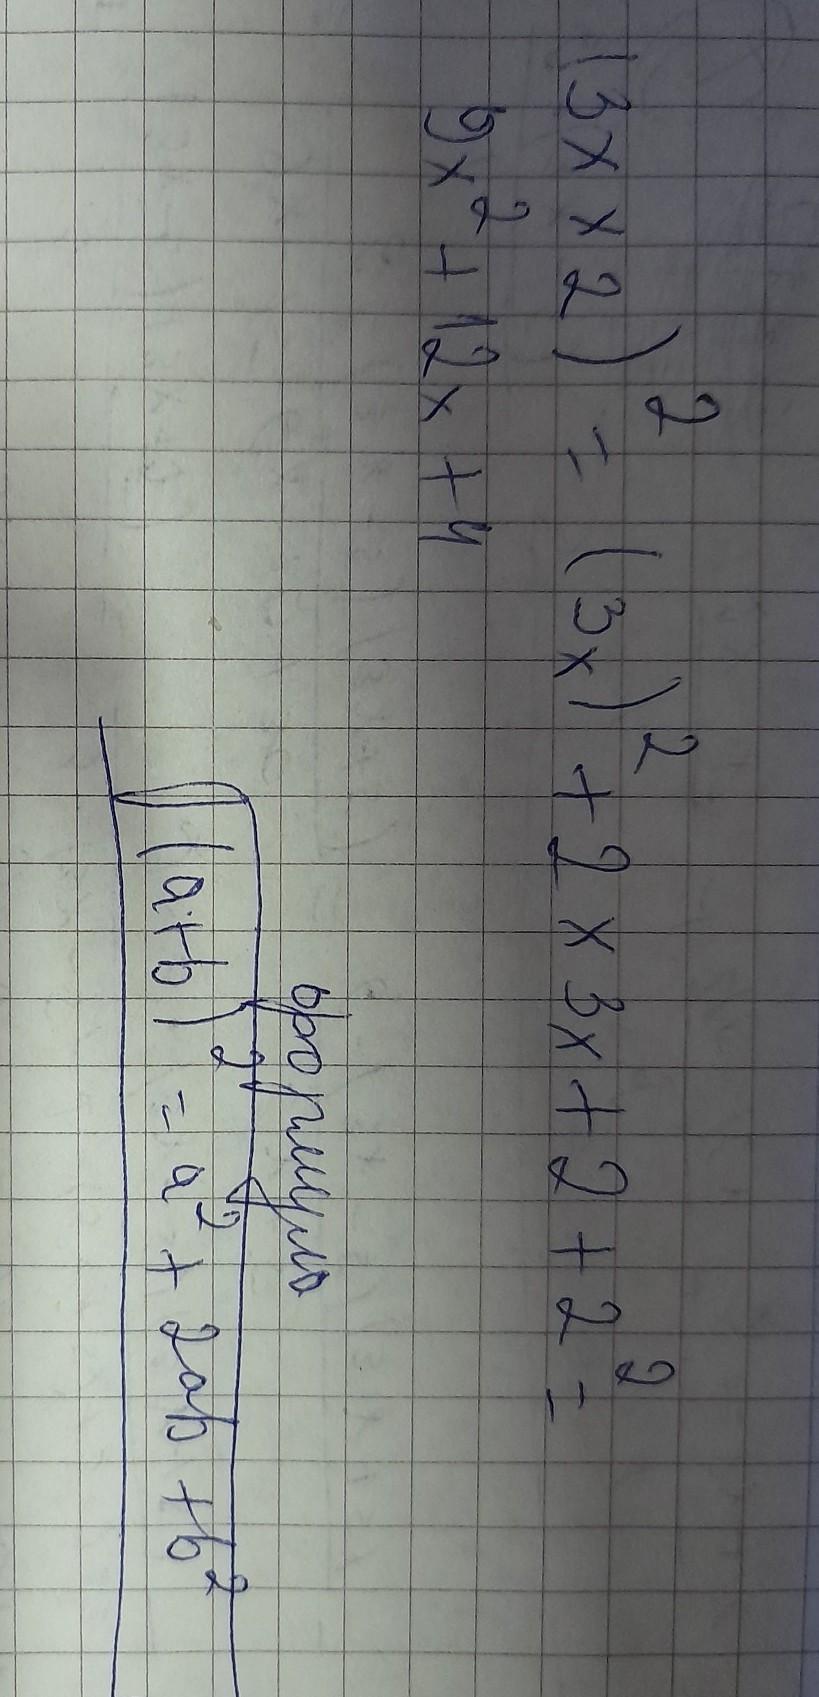 (3x x 2)² = (3x)² + 2 x 3x + 2 + 2² =
9x² + 12x + 4
формула
(a+b)² = a² + 2ab + b²